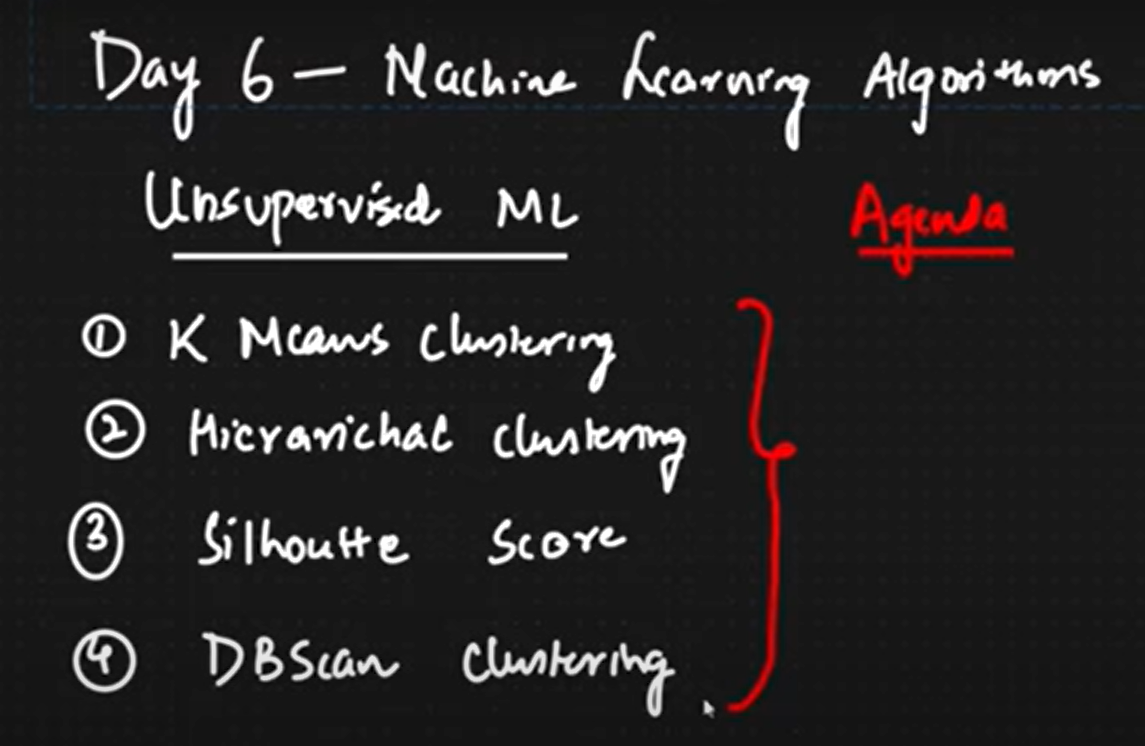 Day 6 — Machine Learning Algorithms
Unsupervised ML
Agenda
① K Means Clustering
② Hierarichal clustering
③ Silhoutte Score
④ DBScan Clustering